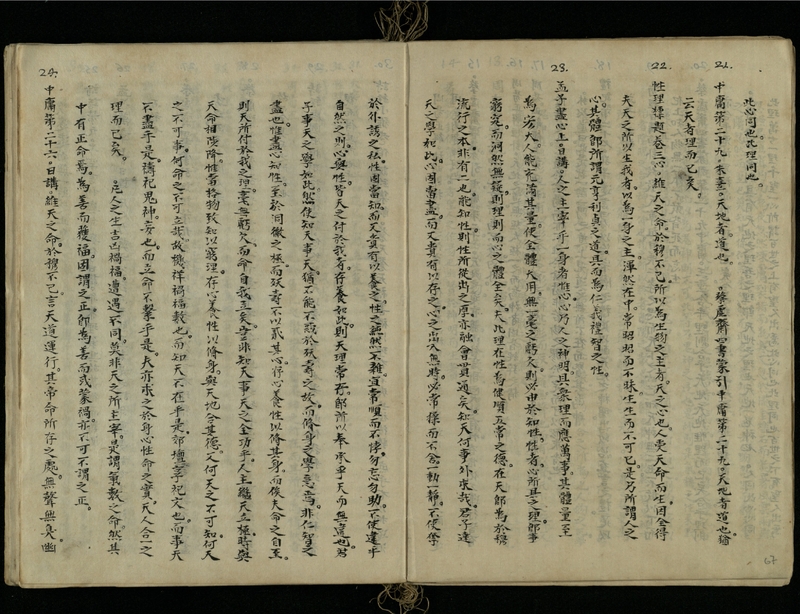 此心同也。此理同也。
21.
中庸第二十九。朱熹。天地者道也。。蔡虛齋四書蒙引中庸第二十九。天地者道也猶
云天者理而已矣。
22.
性理標題卷三心。維天之命。於穆不已所以為生物之主者。天之心也人受天命而生。因全得
夫天之所以生我者。以為一身之主。渾然在中。常昭昭而不昧。生生而不可已。是乃所謂人之
心。其體即所謂元亨利貞之道。具而為仁義禮智之性。
23.
孟子盡心上日講。人之主宰乎一身者惟心。心乃人之神明。具衆理而應萬事。其體量至
為宏大。人能充滿其量。使全體大用。無一毫之虧欠。則以由於知性。性者心所具之理。即事
窮究。而洞然無疑。則理則而心之體全矣。夫此理在性為健順五常之德。在天即為於穆
流行之本。非有二也。能知性。則性所從出之原。亦融會貫通矣。知天何事外求哉。君子達
天之學如此。心固當盡。而又貴有以存之。心之出入無時。必常操而不舍。一動一靜。不使學
於外誘之私。性固當知。而又貴有以養之。性之蘊然一不雜。宜常順而不悖。勿忘勿助。不使違乎
自然之則。心與性。皆天之付於我者。存養如此。則天理常存。即所以奉承乎天而無違也。君
子事天之學如此。然使知天事天。猶不能不惑於殀壽之故。而修身之學。未焉。非仁智之
盡也。惟盡心知性。至於洞徹之極。而殀壽不以貳其心。存心養性。以修其身。而俟夫命之自至。
則天所付於我之理。毫無虧欠。而命自我立矣。豈非知天事天之全功乎。人主繼天立極。時與
天命相陟降。惟者格物致知以窮理。存心養性以脩身。與天地合其德。又何天之不可知。何天
之不可事。何命之不可立哉。故禨祥禍福數也。而知天不在乎是。郊壇祭祀文也。而事天
不盡乎是。禱祀鬼神妄也。而立命不繫乎是。夫亦求之於身心性命之實。天人合一之
理而已矣。。凡人之生吉凶禍福。遭遇不同。莫非天之所主宰。是謂氣數之命。然其
中有正命焉。為善而獲福。固謂之正。即為善而或蒙禍。亦不可不謂之正。
24.
中庸第二十六。日講維天之命。於穆不已言天道運行。其帝命所存之處。無聲無臭。幽
67